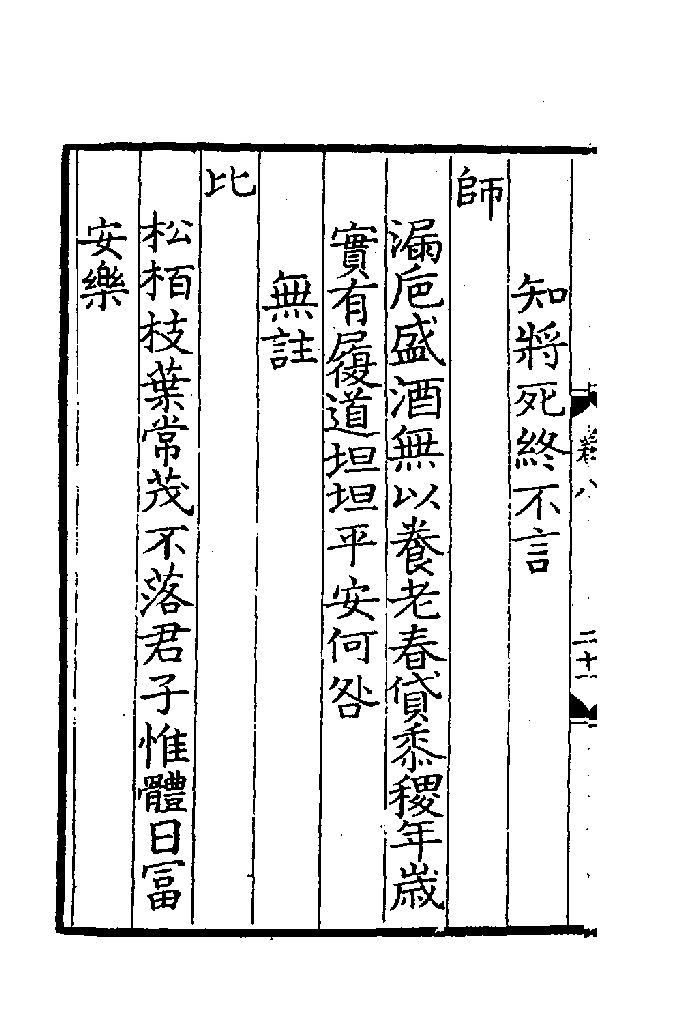 卷八
二十一
知將死終不言
師
漏巵盛酒無以養老春貸黍稷年歲
實有履道坦坦平安何咎
無註
比
松栢枝葉常茂不落君子惟體日冨
安樂